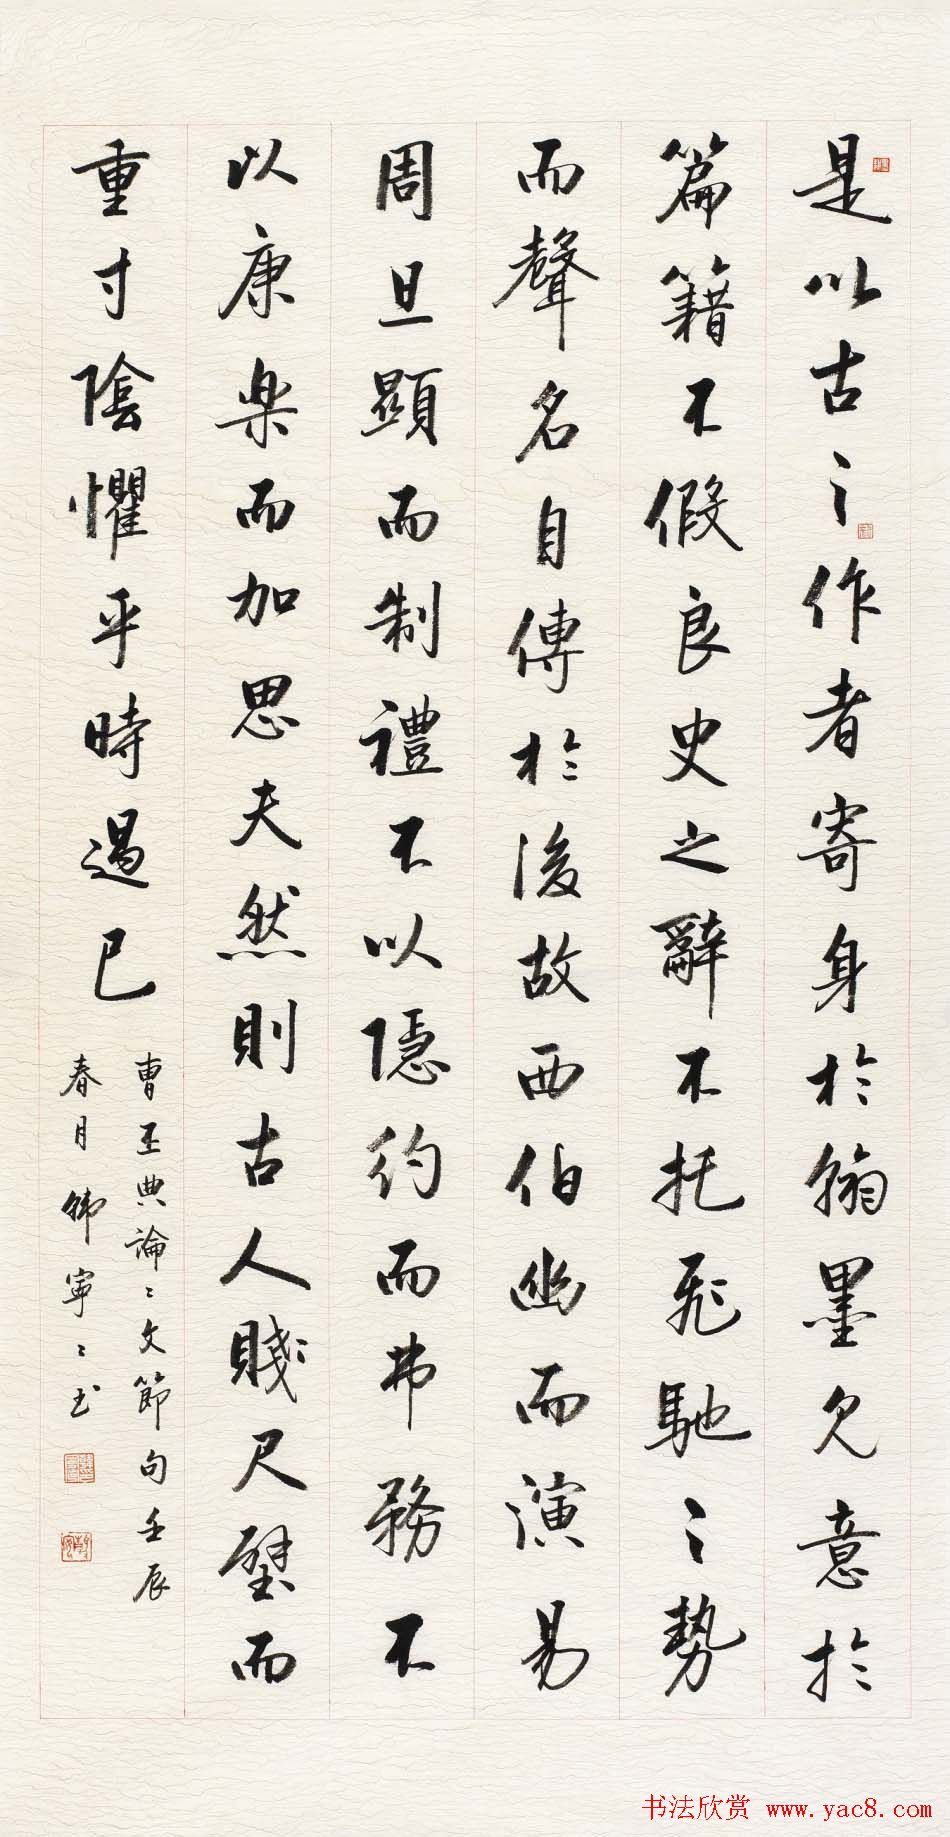 是以古之作者寄身於翰墨見意於
篇籍不假良史之辭不托飛馳之勢
而聲名自傳於後故西伯幽而演易
周旦顯而制禮不以隱約而弗務不
以康樂而加思夫然則古人賤尺璧而
重寸陰懼乎時過已
曹丕典論論文節句壬辰
春月韓寧寧書
书法欣赏 www.yac8.com